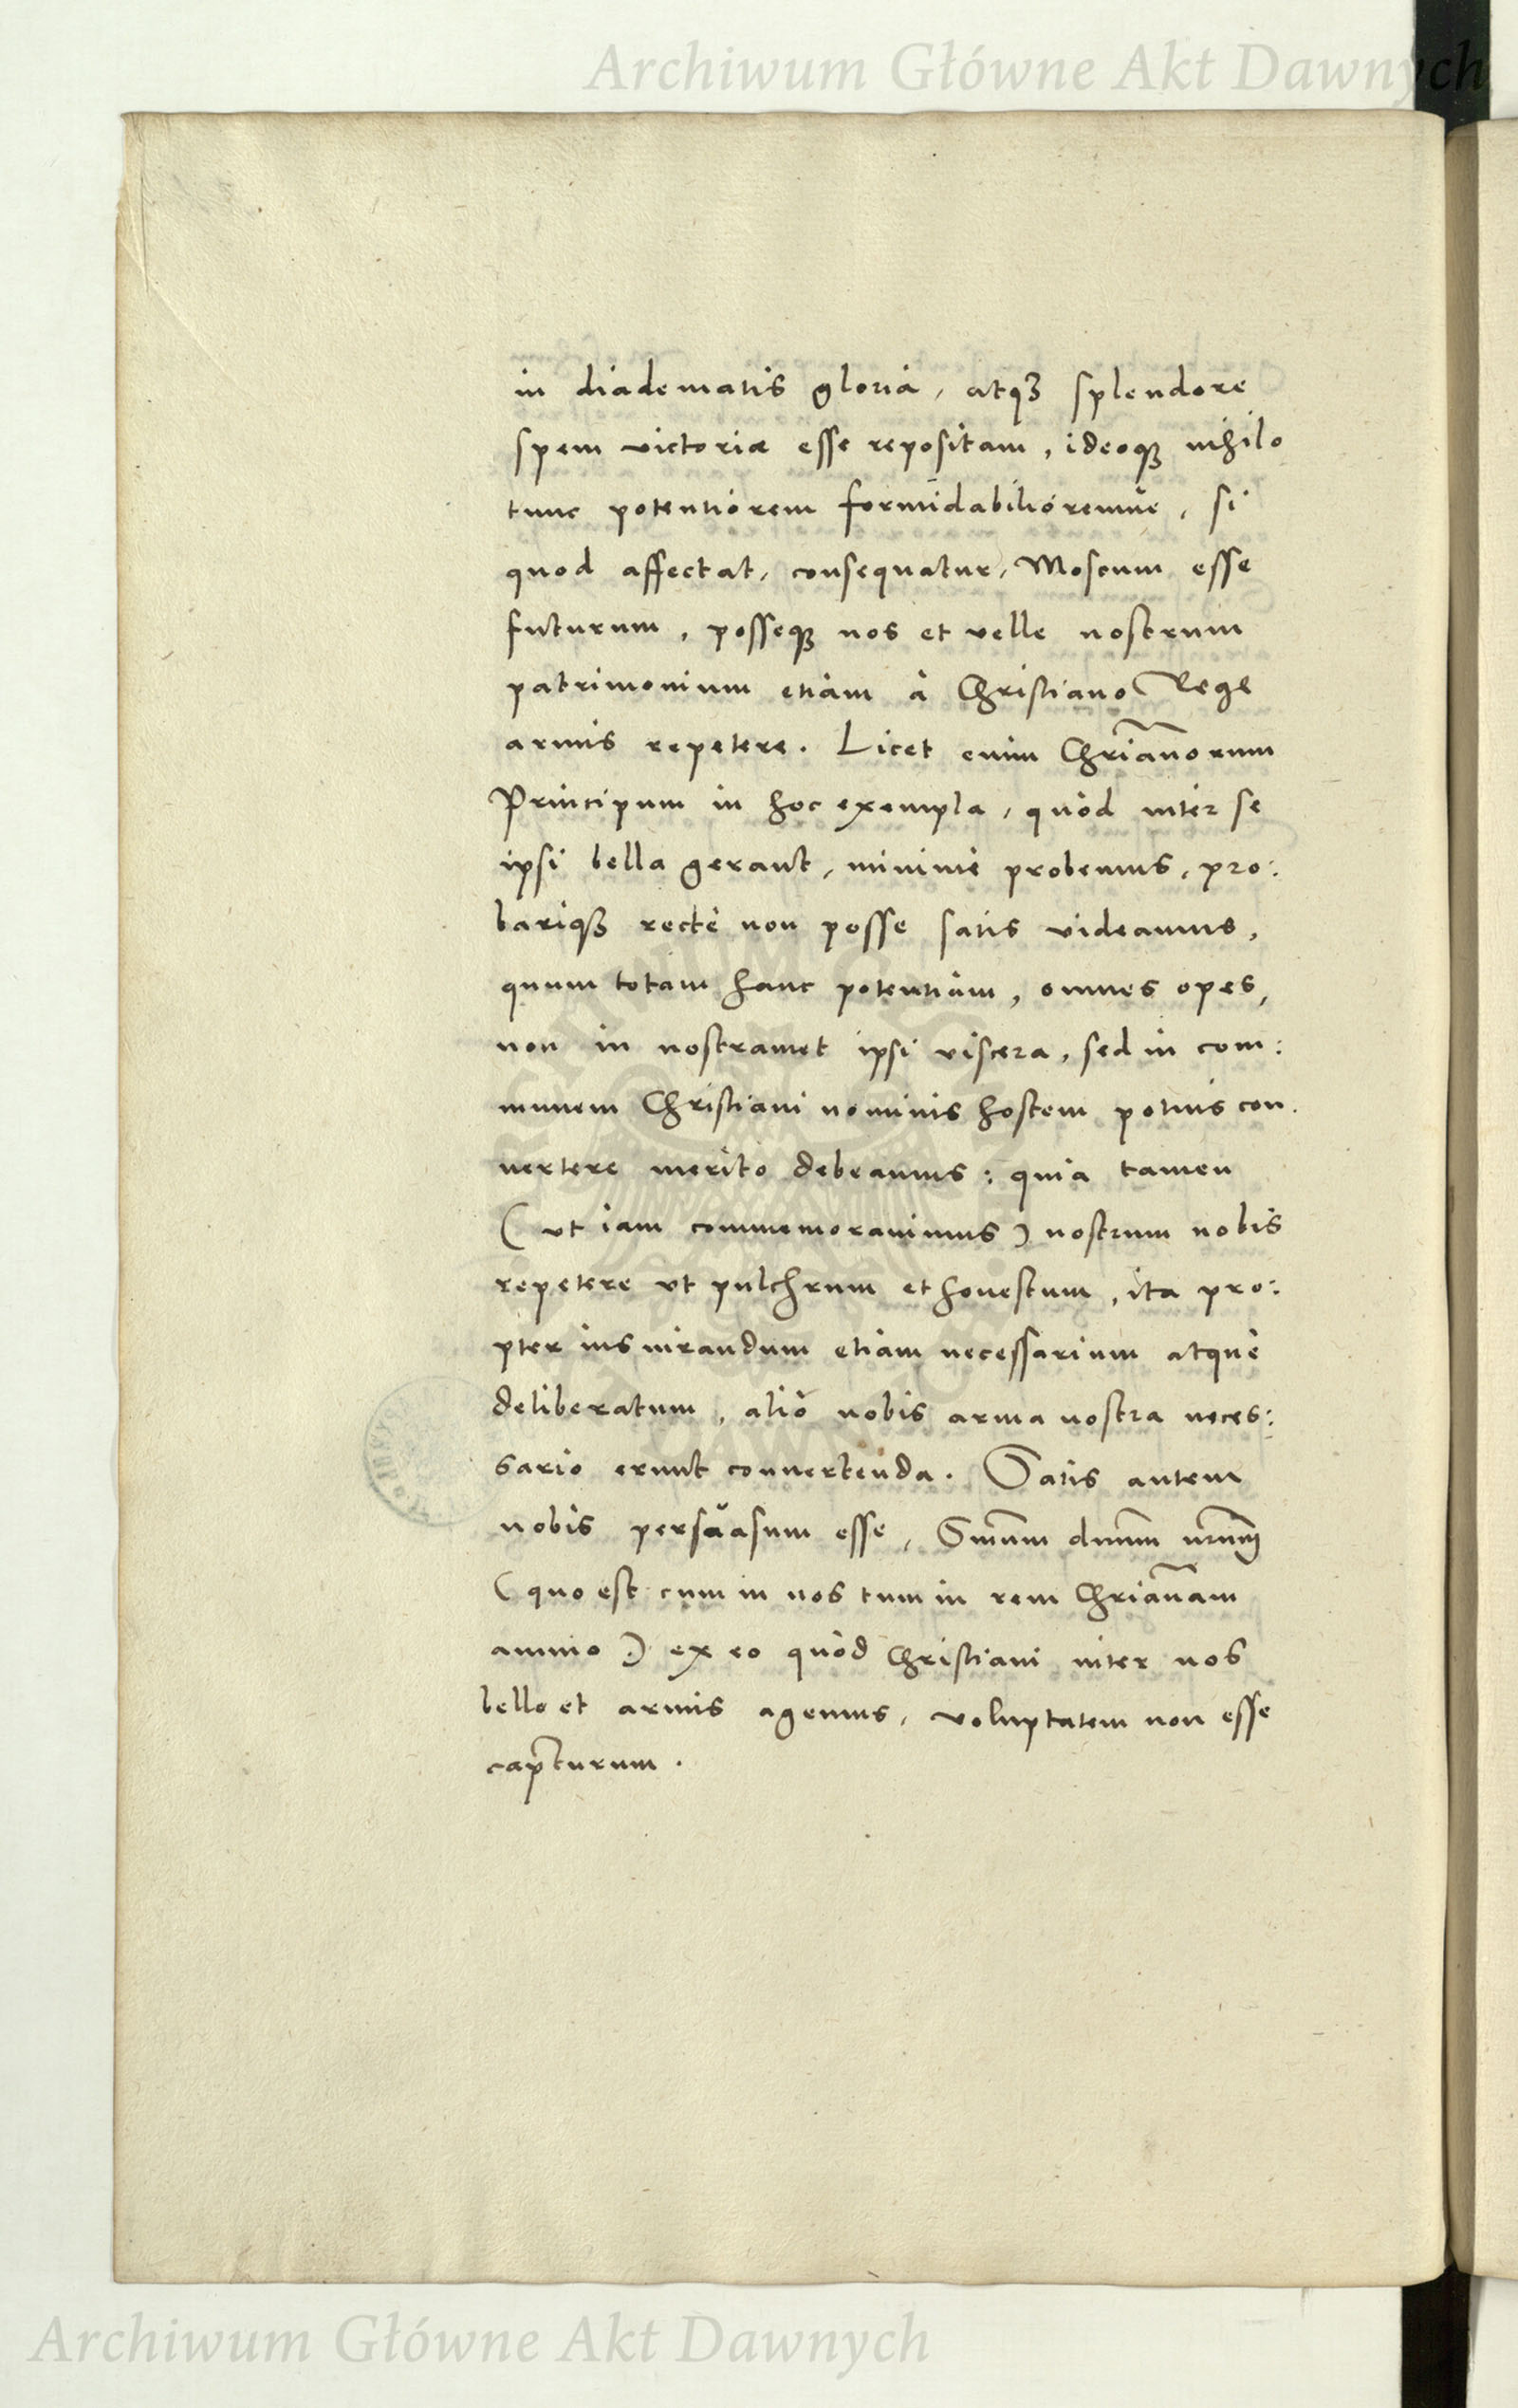 Archiwum Główne Akt Dawnych
in diadematis gloria, atqꝫ splendore
spem victoriæ esse repositam, ideoqꝫ nihilo
tunc potentiorem formidabilioremue, si
quod affectat, consequatur, Moscum esse
futurum, posseqꝫ nos et velle nostrum
patrimonium etiam à Christiano Rege
armis repetere. Licet enim Chrianorum
Principum in hoc exempla, quòd inter se
ipsi bella gerant, minimè probemus, pro:
bariqꝫ rectè non posse satis videamus,
quum totam hanc potentiam, omnes opes,
non in nostramet ipsi viscera, sed in com:
munem Christiani nominis hostem potius con.
uertere merito debeamus: quia tamen
(ut iam commemorauimus) nostrum nobis
repetere ut pulchrum et honestum, ita pro:
pter iusiurandum etiam necessarium atque
deliberatum, aliò nobis arma nostra neces:
sario erunt conuertenda. Satis autem
nobis persuasum esse, Smum dnum vrum
(quo est cum in nos tum in rem Chrianam
animo) ex eo quòd Christiani inter nos
bello et armis agemus, voluptatem non esse
capturum.
Archiwum Główne Akt Dawnych